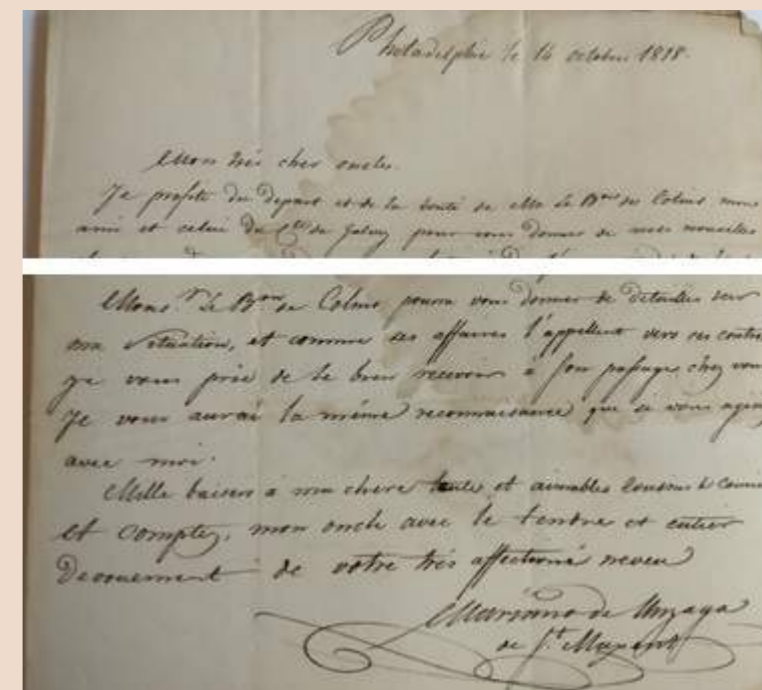 Philadelphie le 16 octobre 1818.
Mon très cher oncle.
Je profite du depart et de la bonté de Mr le Bon de Colins mon
ami et celui du Cte de pour vous donner de mes nouvelles
Monsr. le Bon de Colins pourra vous donner de detailles sur
ma situation, et comme ses affaires l'appellent vers ces contré
je vous prie de le bien recevoir a son passage chez vous
Je vous aurai la même reconnaissance que si vous agiez
avec moi.
Mille baisers à ma chere tante et aimables Cousins &
et comptez, mon oncle avec le tendre et entier
Devouement de votre très affectionné neveu
Mariano de Unzaga
de St. Maxent